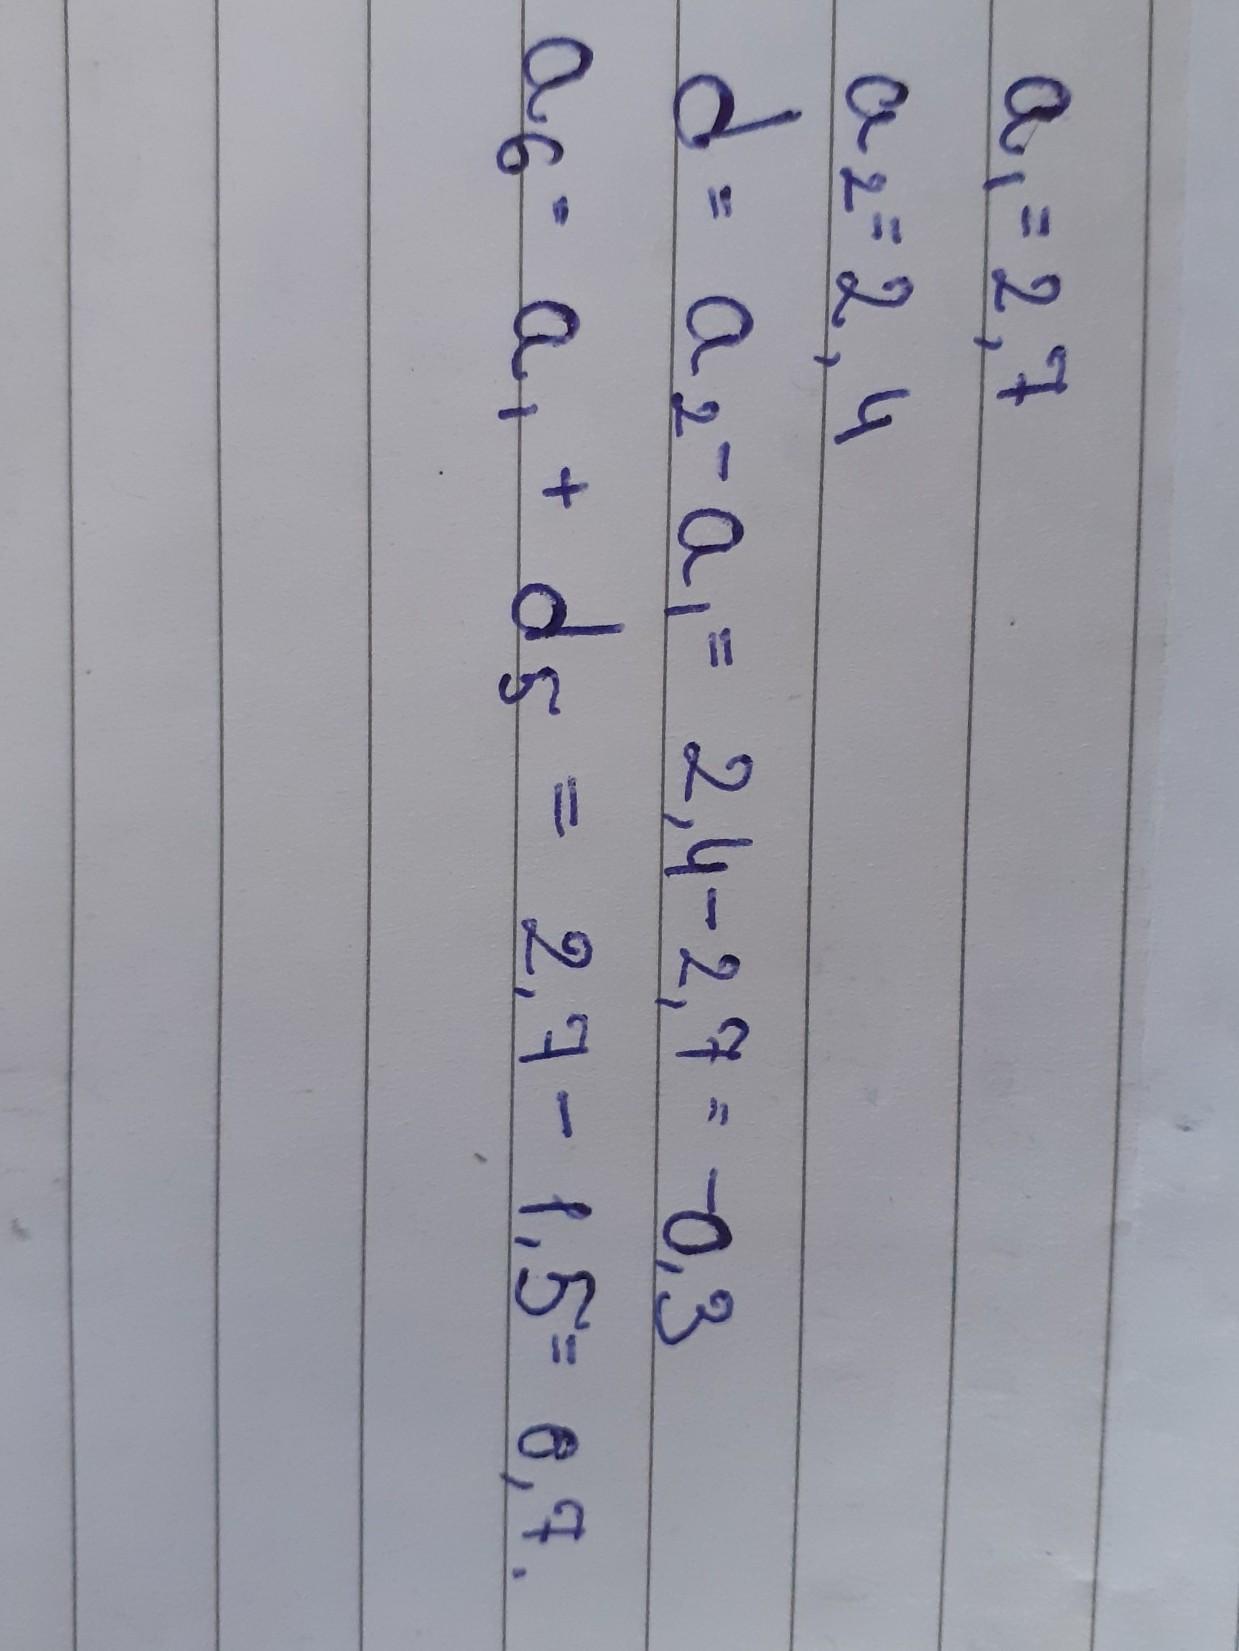 a₁ = 2,7
a₂ = 2,4
d = a₂ - a₁ = 2,4 - 2,7 = -0,3
a₆ = a₁ + d5 = 2,7 - 1,5 = 0,7.